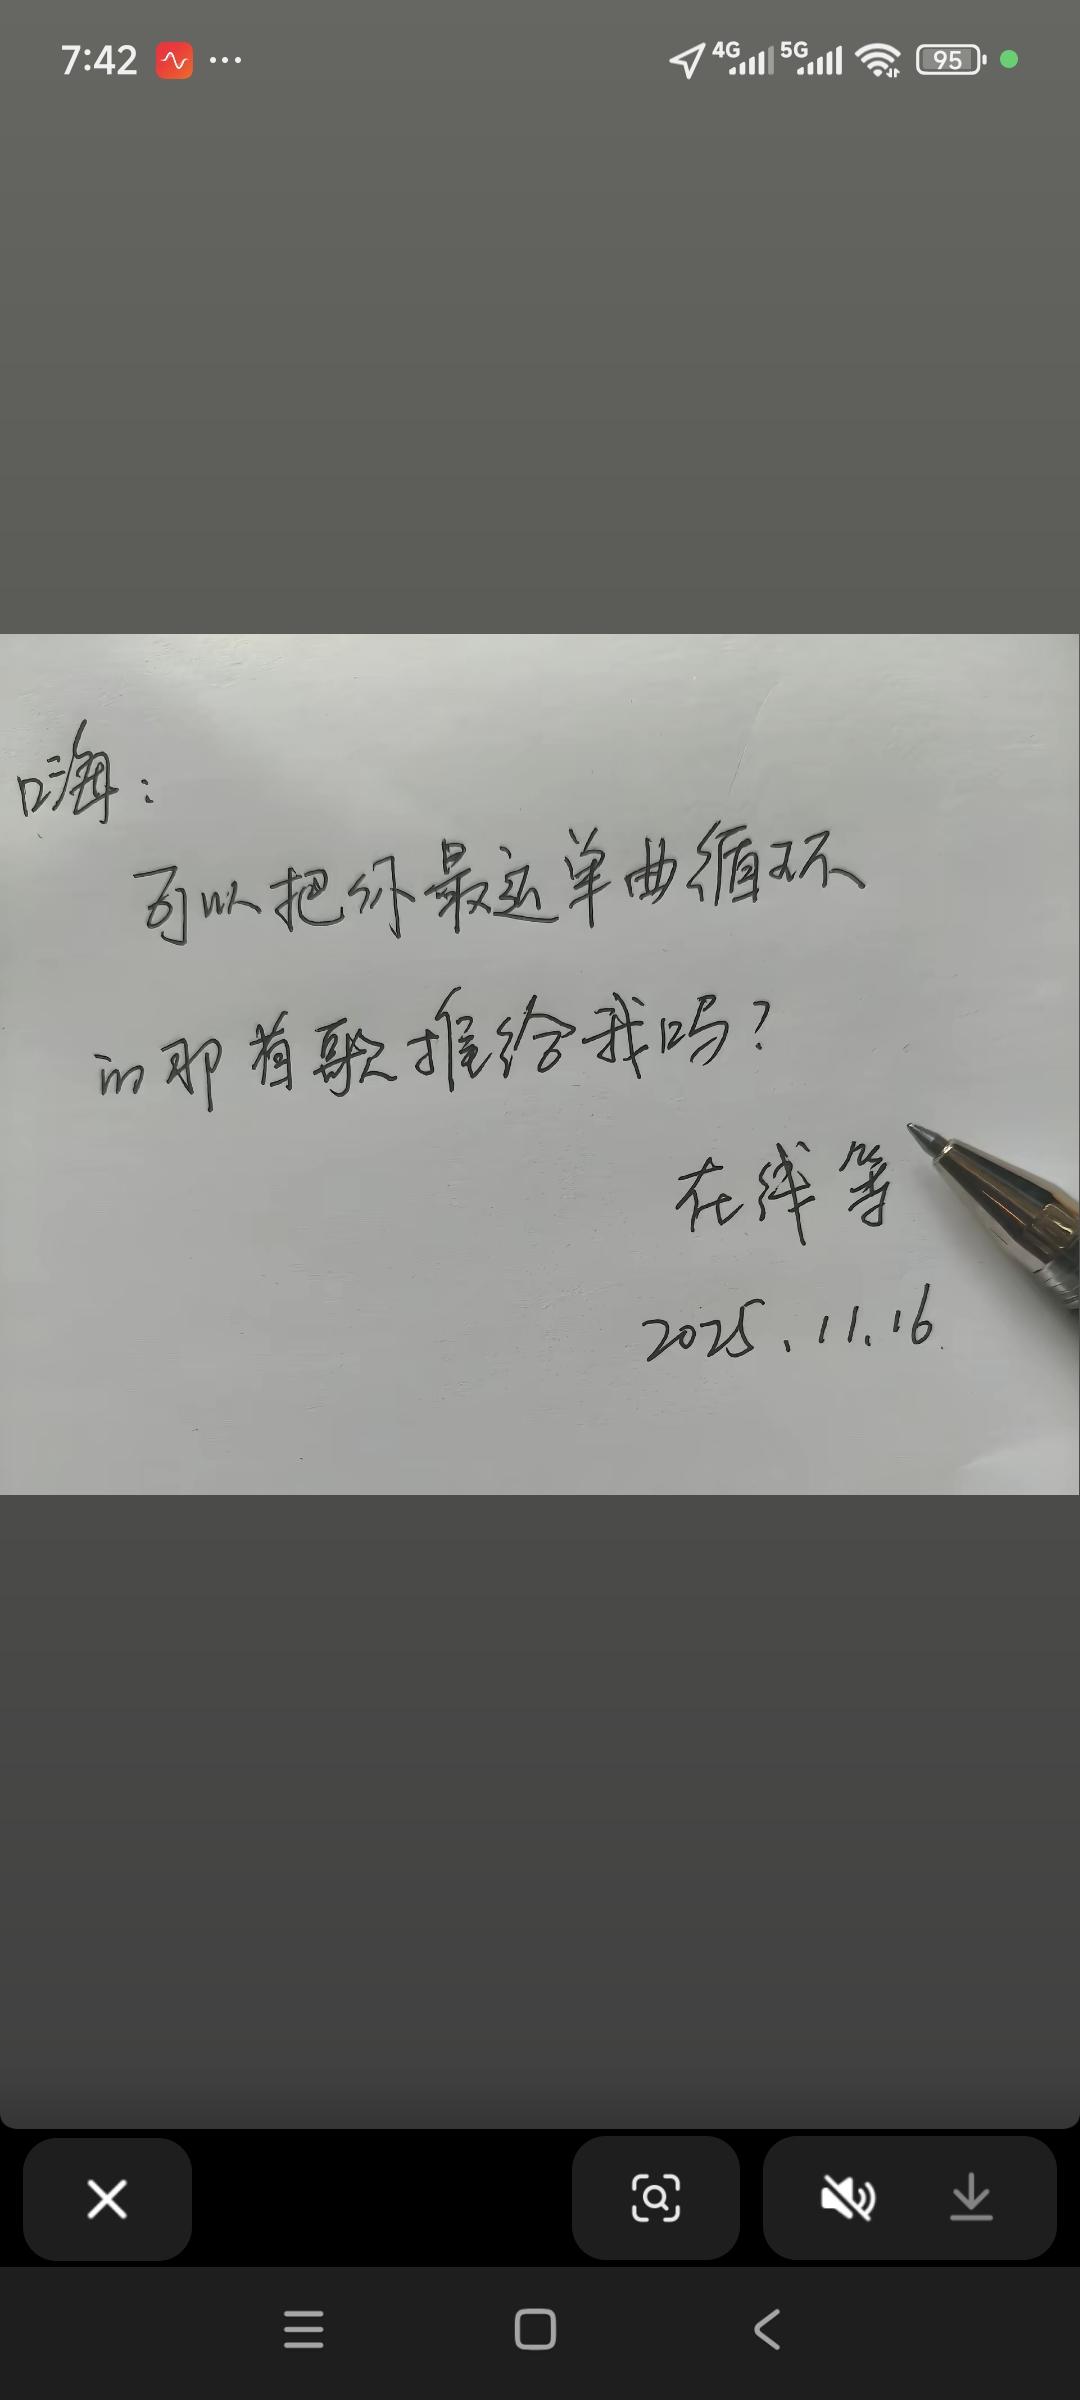 7:42 ... 4G 5G 95
嗨：
可以把你最近单曲循环
的那首歌推给我吗？
在线等
2025.11.16